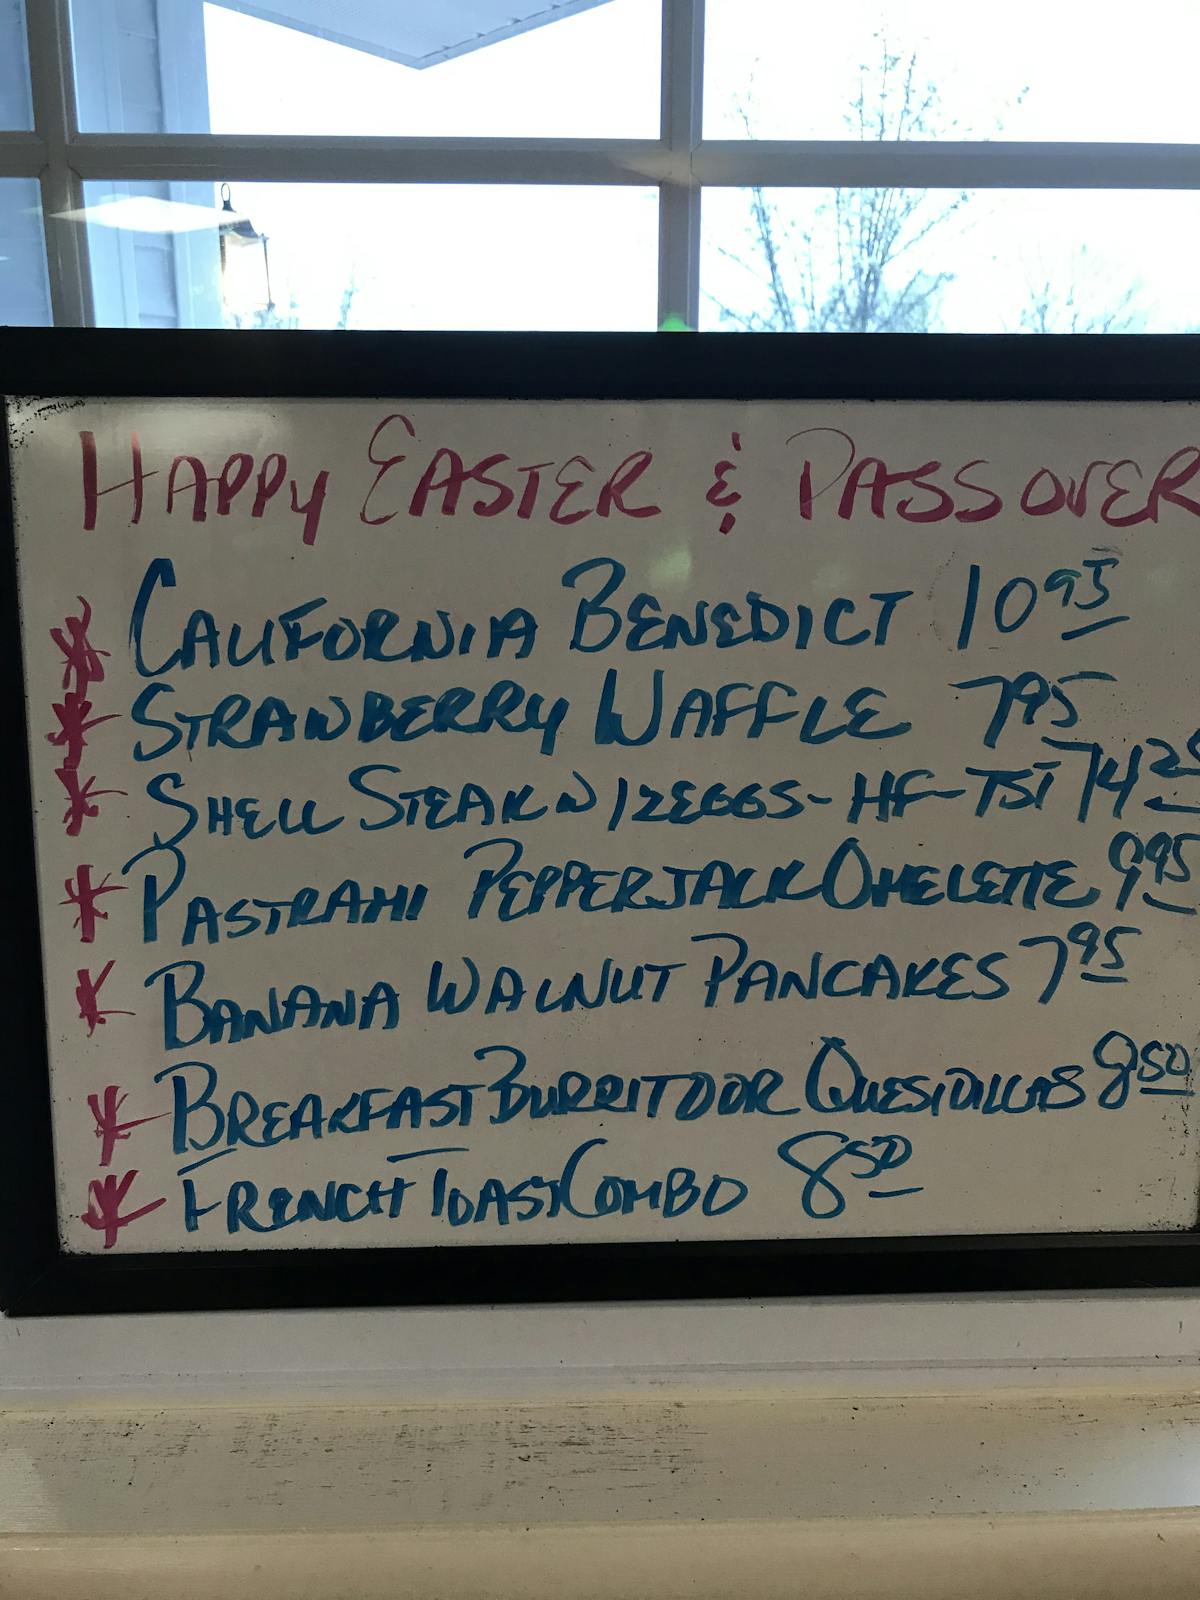 HAPPY EASTER & PASSOVER
* CALIFORNIA BENEDICT 10 95
* STRAWBERRY WAFFLE 7 95
* SHELL STEAK W/2EGGS - HF - TST 14 25
* PASTRAMI PEPPERJACK OMELETTE 9 95
* BANANA WALNUT PANCAKES 7 95
* BREAKFAST BURRITO OR QUESIDILLAS 8 50
* FRENCH TOAST COMBO 8 50